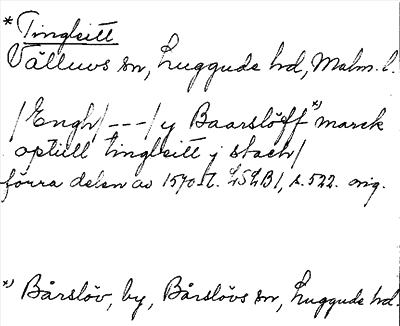 * Tingleitt
Välluvs sn, Luggude hd, Malm. l.
/Engh/---/ y Baarslöff *) marck
optill tingleitt j stach/
förra delen av 1570-t. LSLB1, s. 522. orig.
*) Bårslöv, by, Bårslövs sn, Luggude hd.